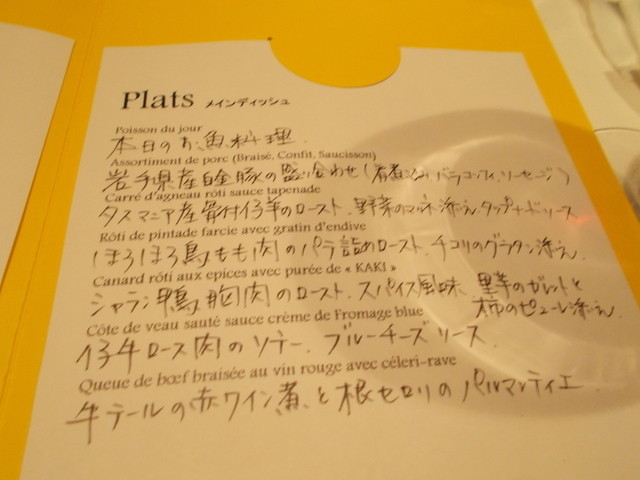 Plats メインディッシュ
Poisson du jour
本日のお魚料理
Assortiment de porc (Braisé, Confit, Saucisson)
岩手県産白金豚の盛り合わせ(
Carré d'agneau rôti sauce tapenade
タスマニア産骨付仔羊のロースト、野菜の 添え タップナードソース
Rôti de pintade farcie avec gratin d'endive
ほろほろ鳥もも肉のパラ詰めロースト、チコリのグラタン添え
Canard rôti aux epices avec purée de « KAKI »
シャラン鴨胸肉のロースト、スパイス風味 里芋のガレットと
柿のピューレ添え
Côte de veau sauté sauce crème de Fromage blue
仔牛ロース肉のソテー、ブルーチーズソース
Queue de bœf braisée au vin rouge avec céleri-rave
牛テールの赤ワイン煮と根セロリのパルマンティエ